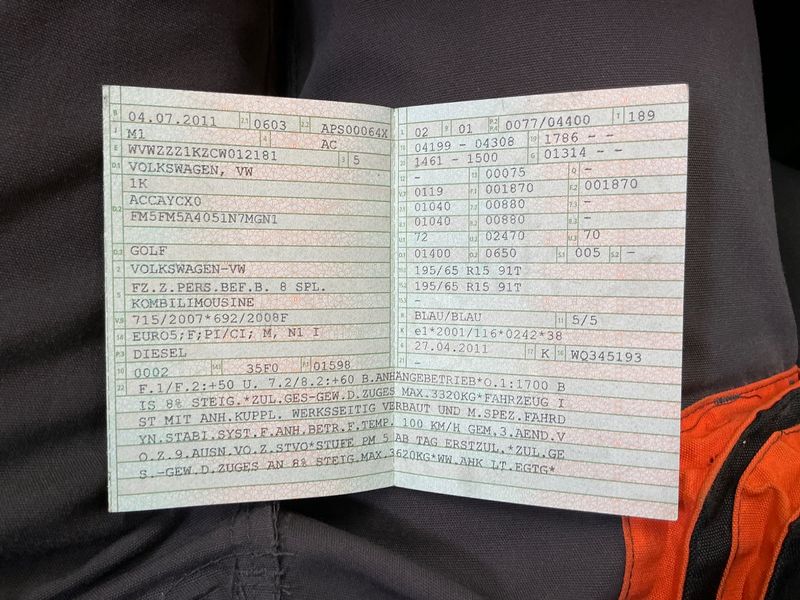 B 04.07.2011 2.1 0603 2.2 APS00064X
J M1 4 AC
E WVWZZZ1KZCW012181 3 5
D.1 VOLKSWAGEN, VW
1K
D.2 ACCAYCX0
FM5FM5A4051N7MGN1
D.3 GOLF
2 VOLKSWAGEN-VW
5 FZ.Z.PERS.BEF.B. 8 SPL.
KOMBILIMOUSINE
V.9 715/2007*692/2008F
14 EURO5;F;PI/CI; M, N1 I
P.3 DIESEL
10 0002 14.1 35F0 P.1 01598
L 02 9 01 P.2 P.4 0077/04400 T 189
18 04199 - 04308 19 1786 - -
20 1461 - 1500 G 01314 - -
12 - 13 00075 Q -
V.7 0119 F.1 001870 F.2 001870
7.1 01040 7.2 00880 7.3 -
8.1 01040 8.2 00880 8.3 -
U.1 72 U.2 02470 U.3 70
O.1 01400 O.2 0650 S.1 005 S.2 -
15.1 195/65 R15 91T
15.2 195/65 R15 91T
15.3 -
R BLAU/BLAU 11 5/5
K e1*2001/116*0242*38
6 27.04.2011 17 K 16 WQ345193
21 -
22 F.1/F.2:+50 U. 7.2/8.2:+60 B.ANHÄNGEBETRIEB*O.1:1700 B
IS 8% STEIG.*ZUL.GES-GEW.D.ZUGES MAX.3320KG*FAHRZEUG I
ST MIT ANH.KUPPL. WERKSSEITIG VERBAUT UND M.SPEZ.FAHRD
YN.STABI.SYST.F.ANH.BETR.F.TEMP. 100 KM/H GEM.3.AEND.V
O.Z.9.AUSN.VO.Z.STVO*STUFE PM 5 AB TAG ERSTZUL.*ZUL.GE
S.-GEW.D.ZUGES AN 8% STEIG.MAX.3620KG*WW.AHK LT.EGTG*